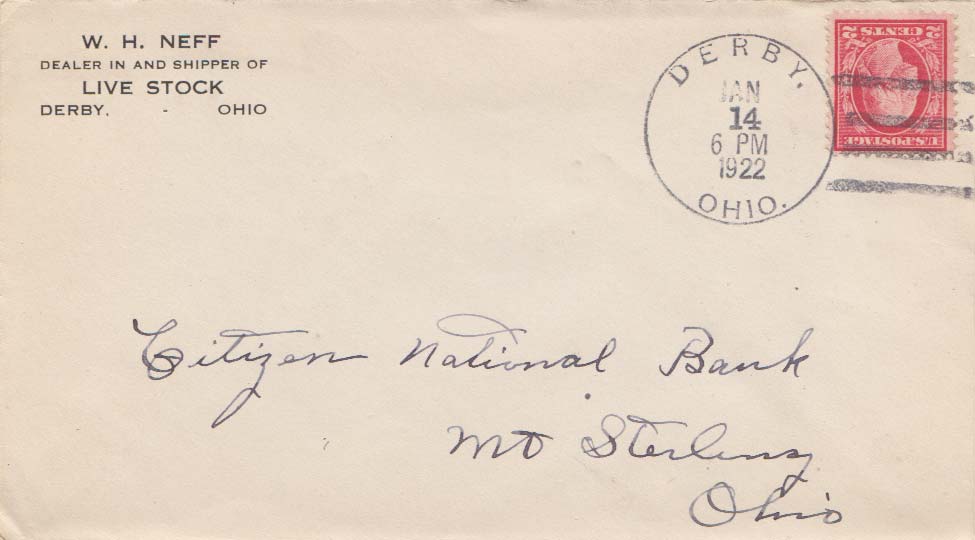 W. H. NEFF
DEALER IN AND SHIPPER OF
LIVE STOCK
DERBY, - OHIO
DERBY,
JAN
14
6 PM
1922
OHIO.
U.S. POSTAGE
2 CENTS 2
Citizen National Bank
Mt Sterling
Ohio